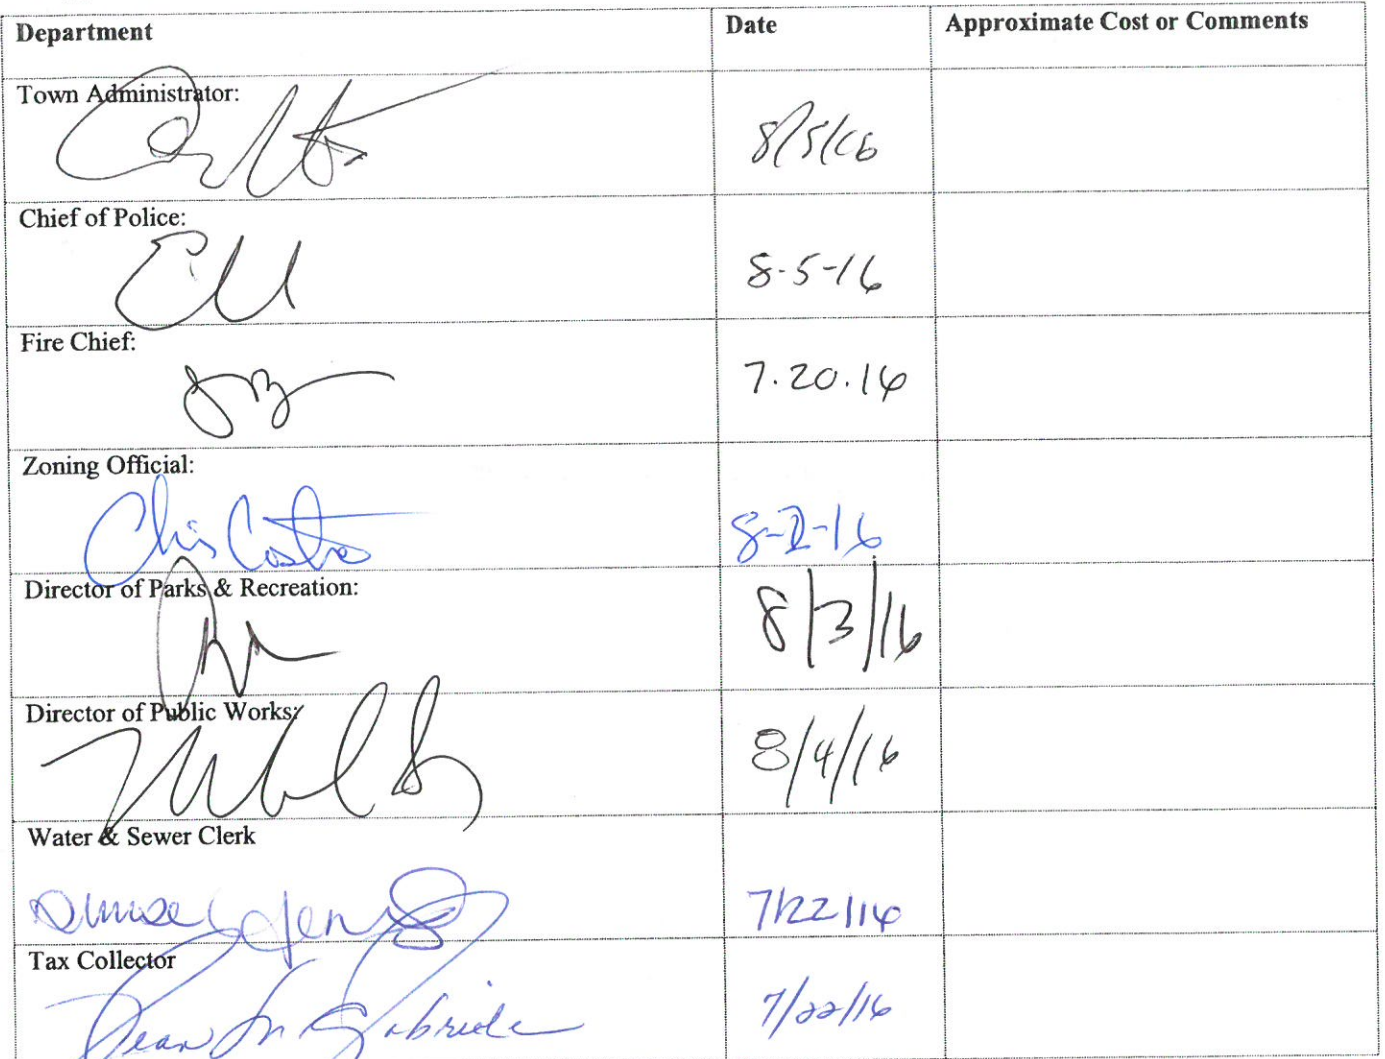 Department Date Approximate Cost or Comments
Town Administrator:
8/5/16
Chief of Police:
8-5-16
Fire Chief:
7.20.16
Zoning Official:
Chris Costa 8-2-16
Director of Parks & Recreation:
8/3/16
Director of Public Works:
8/4/16
Water & Sewer Clerk
7/22/16
Tax Collector
7/22/16